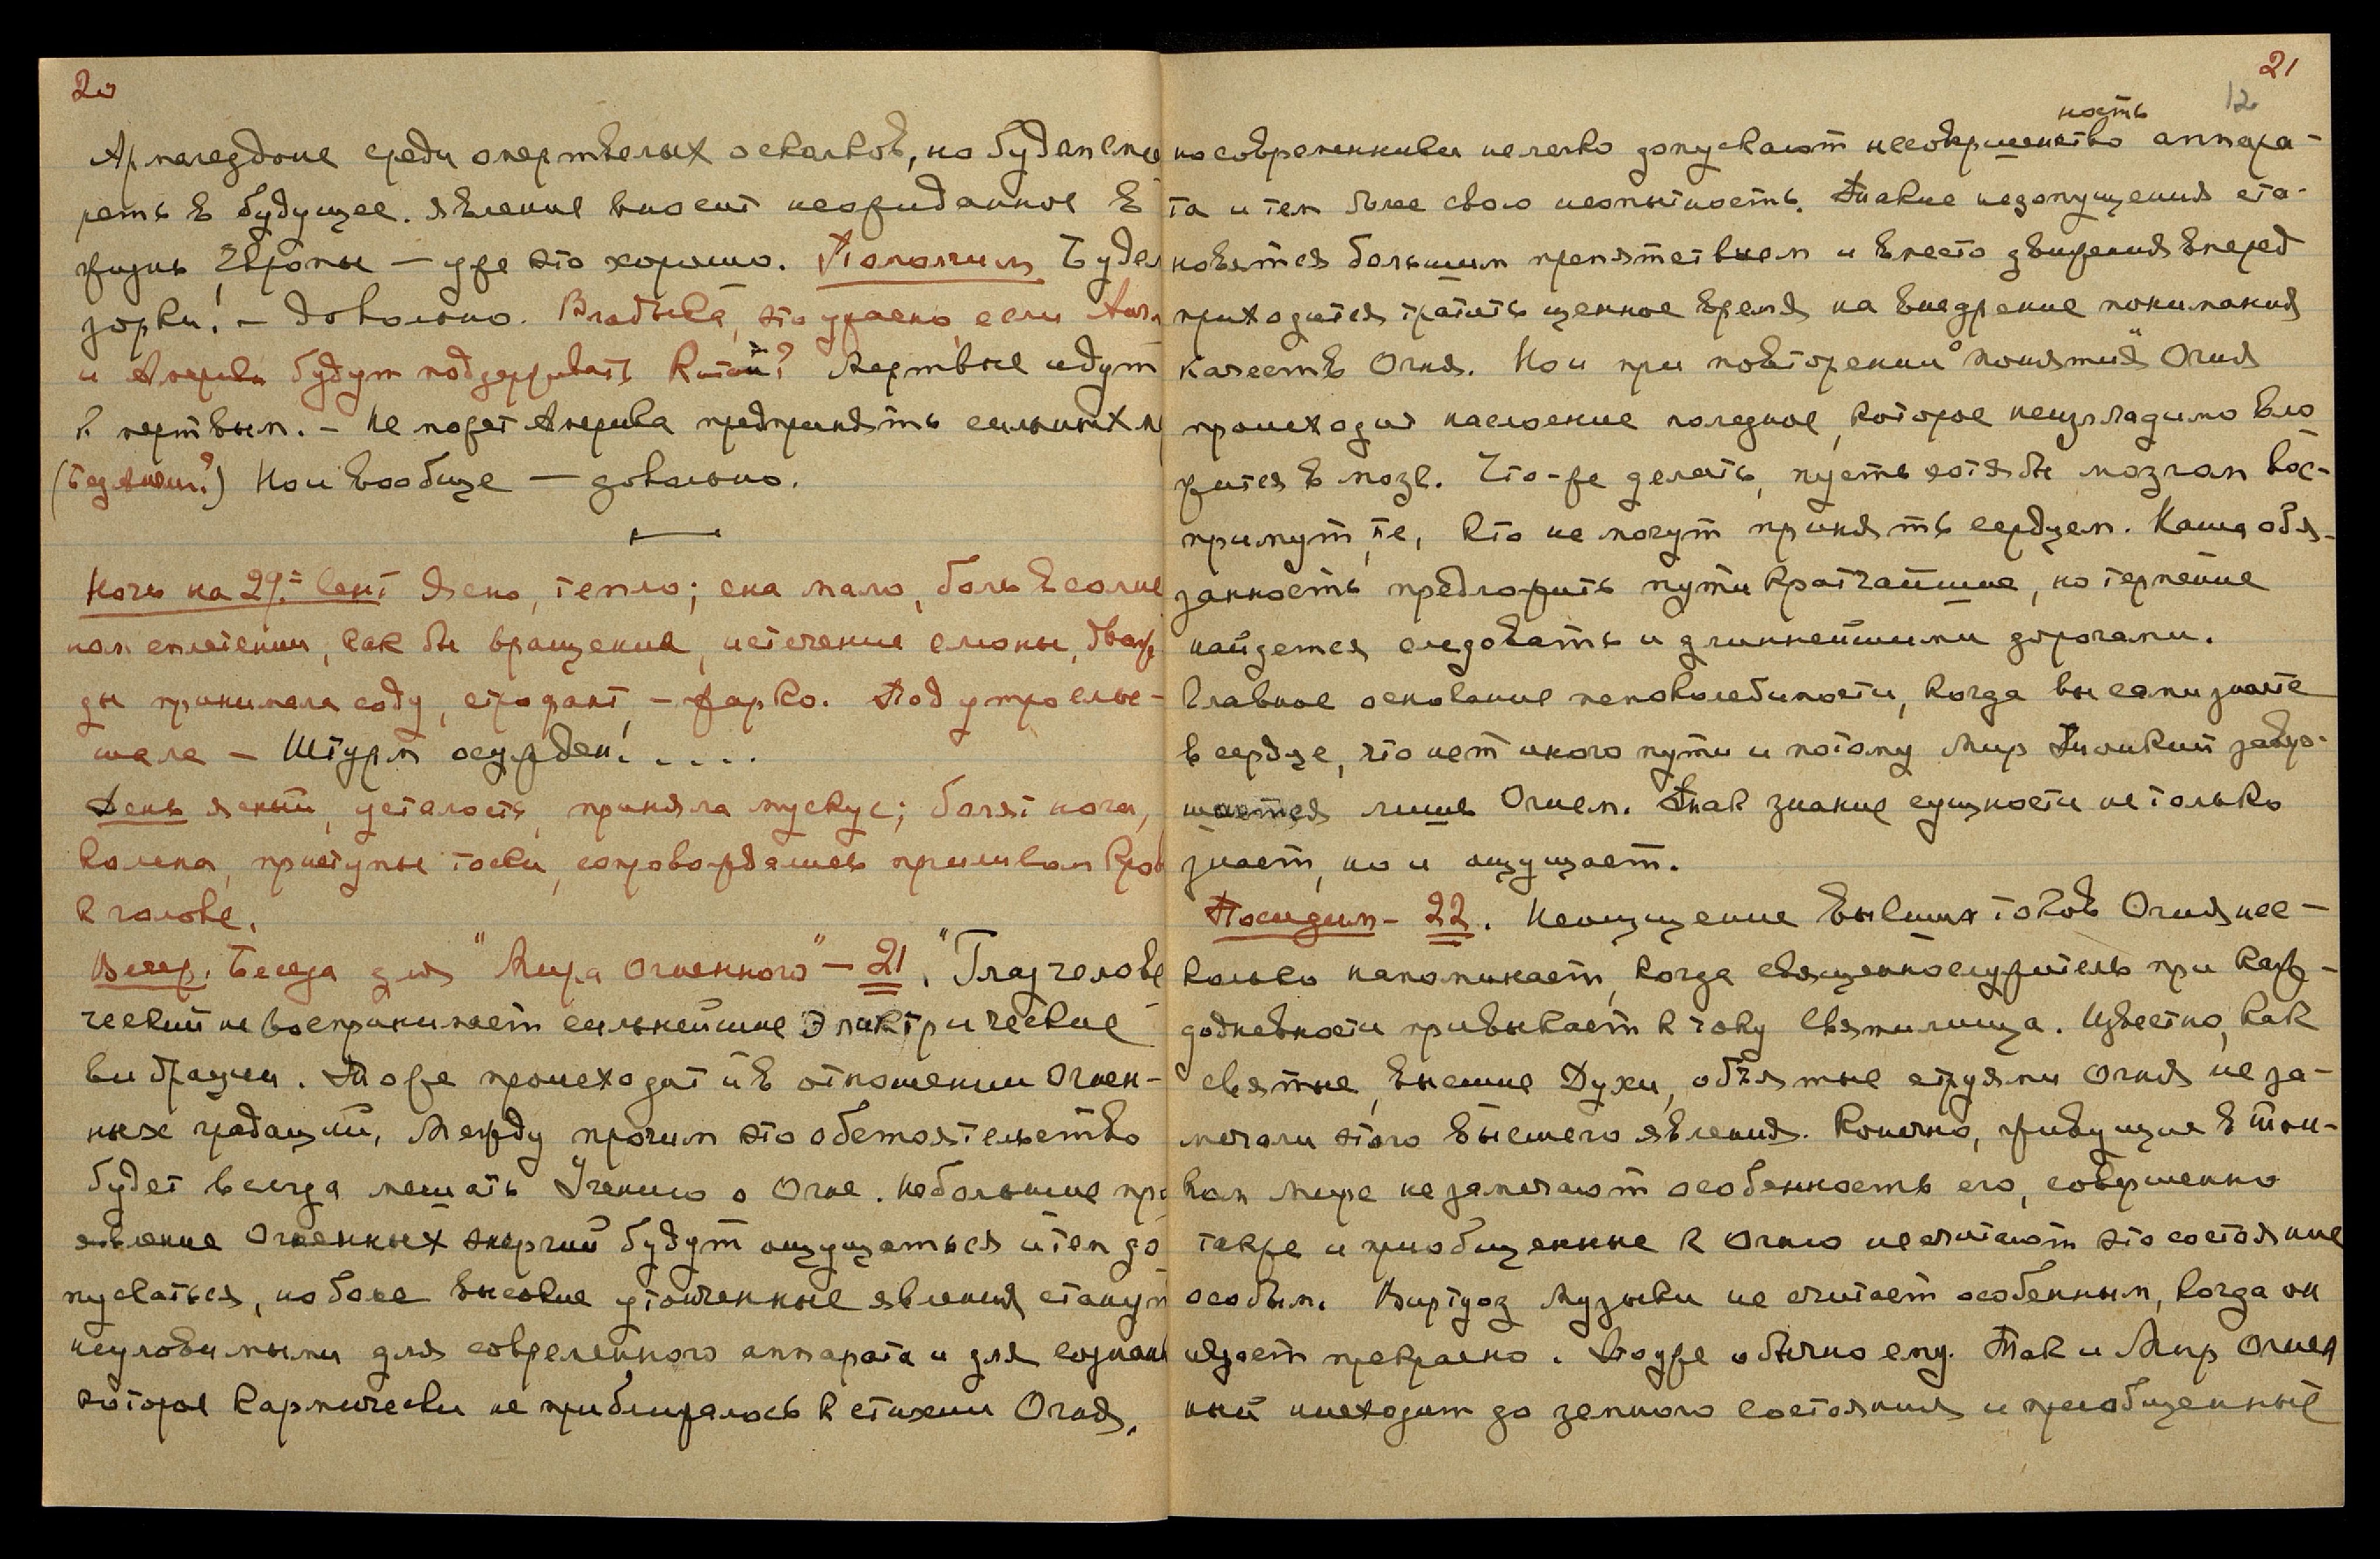 20
Армагеддоне среди омертвелых осколков, но будем смо
реть в будущее. Явление вносит неожиданное в
жизнь Европы — уже это хорошо. Помолчим Будем
зорки! — Довольно. Владыка, это ужасно, если Англ
и Америка будут поддерживать Китай? Мертвые идут
к мертвым. — Не может Америка предпринять сильных м
Но и вообще — довольно.
Ночь на 29.= Сент Ясно, тепло; сна мало, боль в солне
ном сплетении, как бы вращение, истечение слюны, дваж
ды принимала соду, строфант, — жарко. Под утро слы-
шала — Штурм осужден! . . . .
День ясный, усталость, приняла мускус; болят ноги,
колена, приступы тоски, сопровождались приливом кров
к голове.
Вечер. Беседа для "Мира Огненного" — 21. "Глаз челове
ческий не воспринимает сильнейшие электрические
вибрации. То же происходит и в отношении Огнен-
ных градаций, Между прочим это обстоятельство
будет всегда мешать Учению о Огне. Небольшие про
явление Огненных энергий будут ощущаться и тем до
пускаться, но более высокие утонченные явления станут
неуловимыми для современного аппарата и для сознани
которое кармически не приближалось к стихии Огня.
21
12
ность
но современники нелегко допускают несовершенство аппара-
та и тем более свою неопытность. Такие недопущения ста-
новятся большим препятствием и вместо движения вперед
приходится тратить ценное время на внедрение понимания
качеств Огня. Но и при повторении понятия Огня
происходит наслоение полезное, которое неизгладимо вло
жится в мозг. Что-же делать, пусть хотя бы мозгом вос-
примут те, кто не могут принять сердцем. Наша обя-
занность предложить пути кратчайшие, но терпение
найдется следовать и длиннейшими дорогами.
Главное основание непоколебимости, когда вы сами знаете
в сердце, что нет иного пути и потому Мир Тонкий завер-
шается лишь Огнем. Так знание сущности не только
знает, но и ощущает.
Посидим — 22. Неощущение высших токов Огня нес-
колько напоминает, когда священнослужитель при каж-
додневности привыкает к току Святилища. Известно, как
святые, высшие Духи, объятые струями Огня не за-
мечали этого высшего явления. Конечно, живущие в тон-
ком мире не замечают особенность его, совершенно
также и приобщенные к Огню не считают это состояние
особым. Виртуоз музыки не считает особенным, когда он
играет прекрасно. Это уже обычно ему. Так и Мир Огнен
ный нисходит до земного состояния и приобщенные